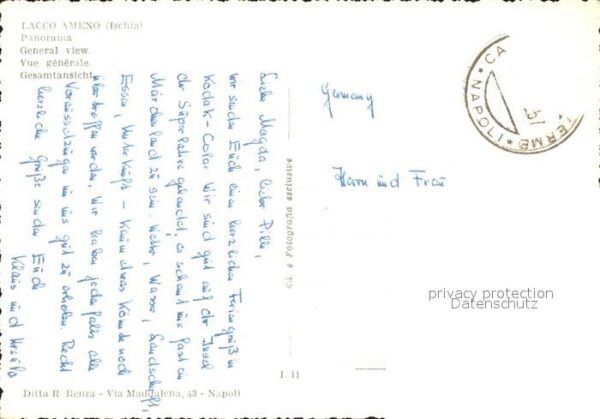 LACCO AMENO (Ischia)
Panorama
General view.
Vue générale.
Gesamtansicht.
Liebe Magda, lieber Willi,
wir senden Euch einen herzlichen Feriengruß in
Kodak-Color. Wir sind gut auf der Insel
der Superlative gelandet, es scheint uns fast ein
Märchenland zu sein. Wetter, Wasser, Landschaft,
Essen, Unterkunft - kaum etwas könnte noch
übertroffen werden. Wir haben jedenfalls alle
Voraussetzungen uns gut zu erholen. Recht
herzliche Grüße senden Euch
Klaus und Ursula
Fotografia
Germany
Herrn und Frau
CA
TERME
NAPOLI
privacy protection
Datenschutz
I. II
Ditta R. Renza - Via Maddalena, 43 - Napoli